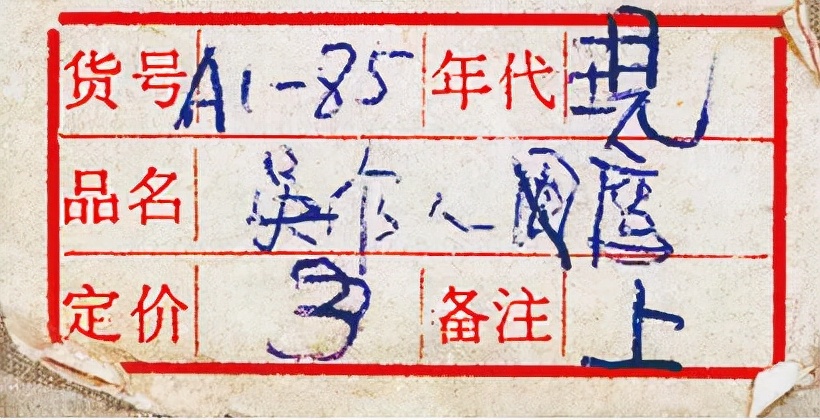 货号 A1-85 年代 現
品名 吴作人
定价 3 备注 上